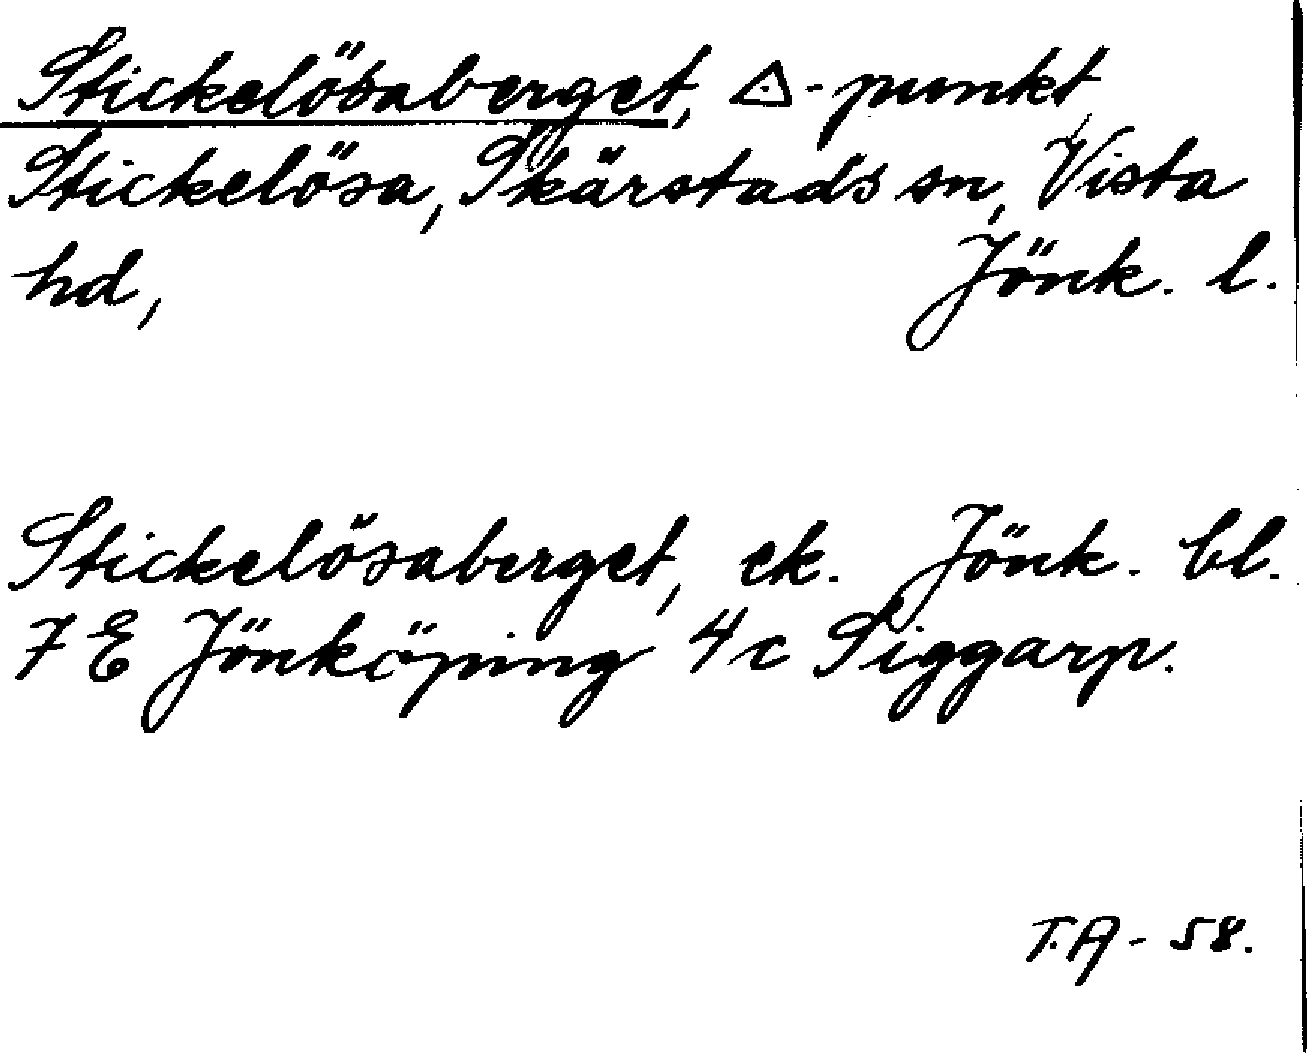 Stickelösaberget, △-punkt
Stickelösa, Skärstads sn, Vista
hd, Jönk. l.
Stickelösaberget, ek. Jönk. bl.
7 E Jönköping 4 c Siggarp.
T.A - 58.